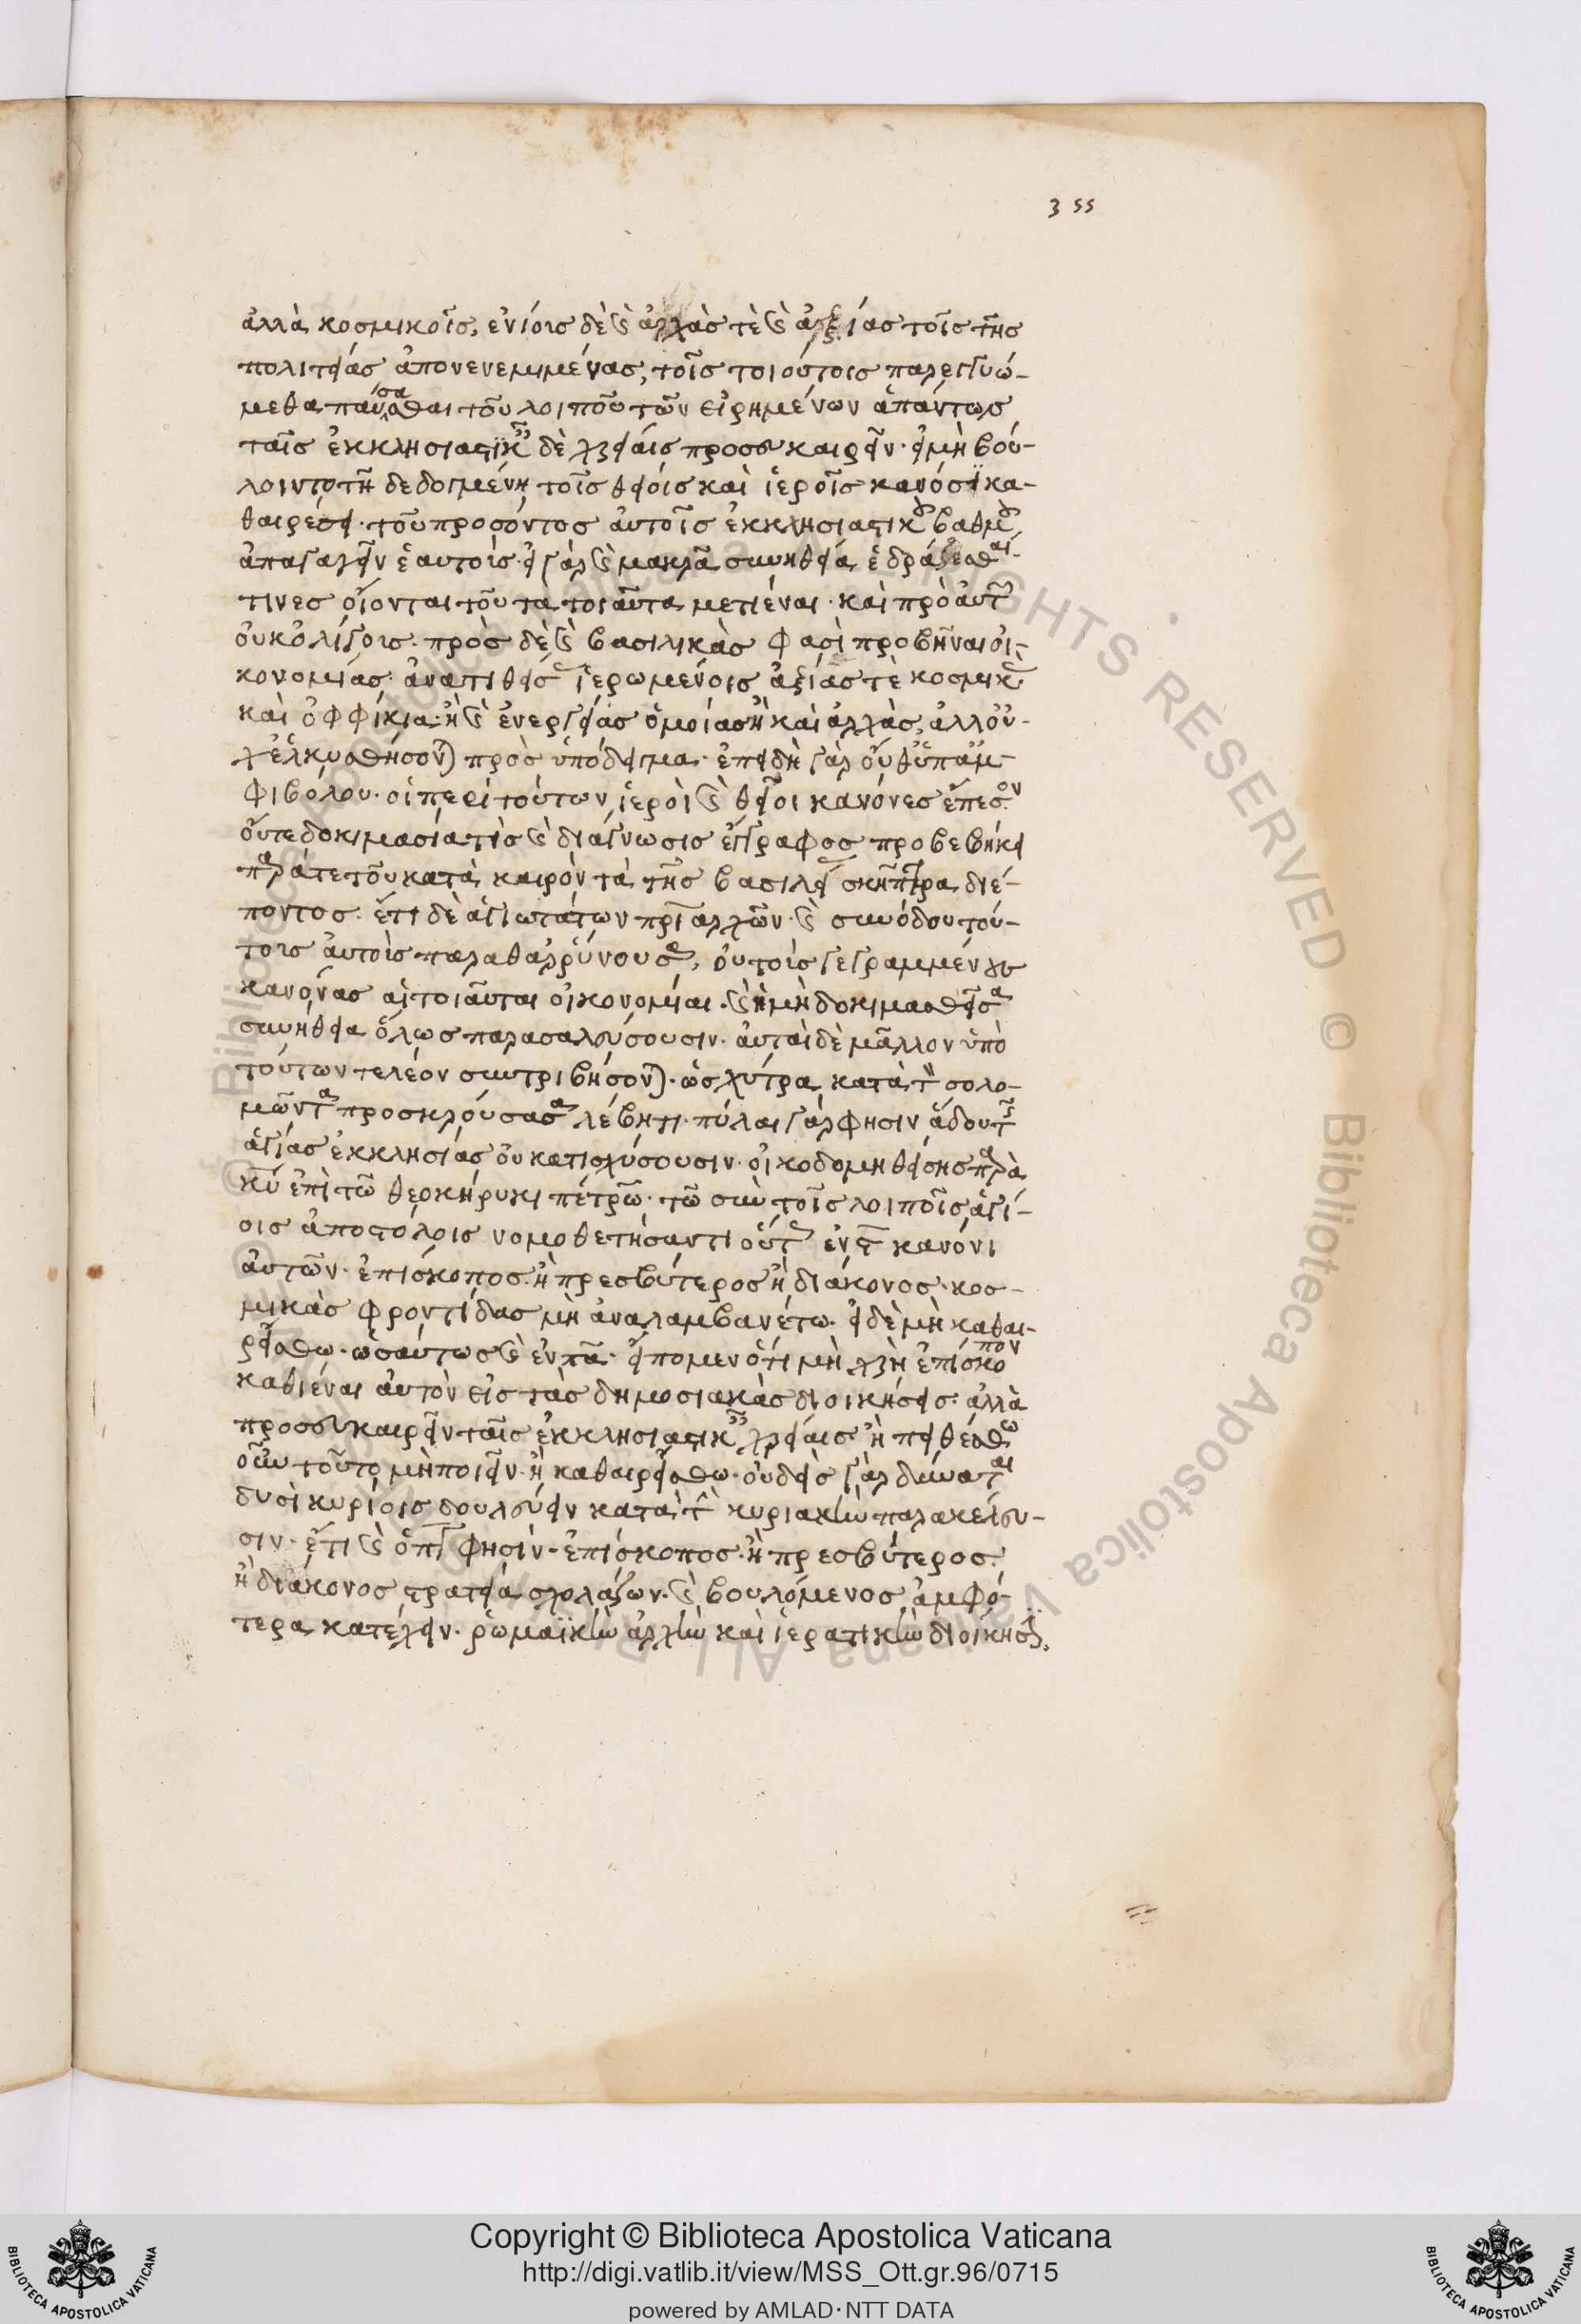 355
ἀλλὰ κοσμικοῖς, ἐνίοις δὲ καὶ ἀρχὰς τὲ καὶ ἀξίας τοῖς τῆς
πολιτείας ἀπονενεμημένας, τοῖς τοιούτοις παρεγγυώ-
μεθα παύσασθαι τοῦ λοιποῦ τῶν εἰρημένων ἁπάντων
ταῖς ἐκκλησιαστικαῖς δὲ χρείαις προσευκαιρεῖν· εἰ μὴ βού-
λοιντο τῇ δεδομένῃ τοῖς θείοις καὶ ἱεροῖς κανόσϊ κα-
θαιρέσει· τοῦ προσόντος αὐτοῖς ἐκκλησιαστικοῦ βαθμοῦ
ἀπαγαγεῖν ἑαυτούς· εἰ γὰρ καὶ μακρᾶ συνηθεία ἑδράζεσθαί
τινες οἴονται τοῦ τὰ τοιαῦτα μετιέναι· καὶ πρὸ αὐτῶν
οὐκ ὀλίγοις· πρὸς δὲ καὶ βασιλικὰς φασὶ προβῆναι οἰ-
κονομίας ἀνατιθείσας ἱερωμένοις ἀξίας τὲ κοσμικὰς
καὶ ὀφφίκια· ἢ καὶ ἐνεργείας ὁμοίας ἢ καὶ ἀρχὰς, ἀλλ' οὐ-
χ ἑλκυσθήσονται πρὸς ὑπόδειγμα· ἐπειδὴ γὰρ οὔθ' ὑπ' ἀμ-
φιβόλου· οἱ περὶ τούτων ἱεροὶ καὶ θεῖοι κανόνες ἔπεσον
οὔτε δοκιμασία τὶς καὶ διάγνωσις ἔγγραφος προβεβήκει
παρά τε τοῦ κατὰ καιρὸν τὰ τῆς βασιλείας σκῆπτρα διέ-
ποντος· ἔτι δὲ ἁγιωτάτων πατριαρχῶν· καὶ συνόδου τού-
τοις αὐτοῖς παραθαρρύνουσα, οὐ τοὺς γεγραμμένους
κανόνας αἱ τοιαῦται οἰκονομίαι· καὶ ἡ μὴ δοκιμασθεῖσα
συνήθεια ὅλως παρασαλεύσουσιν· αὐταὶ δὲ μᾶλλον ὑπὸ
τούτων τελέον συντριβήσονται· ὡς χύτρα κατὰ τὸν σολο-
μῶντα προσκρούσασα λέβητι· πύλαι γὰρ φησιν ἅδου τῆς
ἁγίας ἐκκλησίας οὐ κατισχύσουσιν· οἰκοδομηθείσης παρὰ
κυ ἐπὶ τῶ θεοκήρυκι πέτρω· τῶ σὺν τοῖς λοιποῖς ἁγί-
οις ἀποστόλοις νομοθετήσαντι οὕτως ἐν ϛ κανόνι
αὐτῶν· ἐπίσκοπος· ἢ πρεσβύτερος ἢ διάκονος· κοσ-
μικὰς φροντίδας μὴ ἀναλαμβανέτω· εἰ δὲ μὴ καθαι-
ρείσθω· ὡσαύτως καὶ ἐν πα· εἴπομεν ὅτι μὴ χρὴ ἐπίσκοπον
καθιέναι αὐτὸν εἰς τὰς δημοσιακὰς διοικήσεις· ἀλλὰ
προσευκαιρεῖν ταῖς ἐκκλησιαστικαῖς χρείαις ἢ πειθέσθω
οὖν τοῦτο μὴ ποιεῖν· ἢ καθαιρείσθω· οὐδεὶς γὰρ δύναται
δυσὶ κυρίοις δουλεύειν κατὰ τὴν κυριακὴν παρακέλευ-
σιν· ἔτι καὶ ὁ πγ φησίν· ἐπίσκοπος· ἢ πρεσβύτερος·
ἢ διάκονος στρατεία σχολάζων· καὶ βουλόμενος ἀμφό-
τερα κατέχειν· ῥωμαϊκὴν ἀρχὴν καὶ ἱερατικὴν διοίκησιν,
Copyright © Biblioteca Apostolica Vaticana
http://digi.vatlib.it/view/MSS_Ott.gr.96/0715
powered by AMLAD·NTT DATA